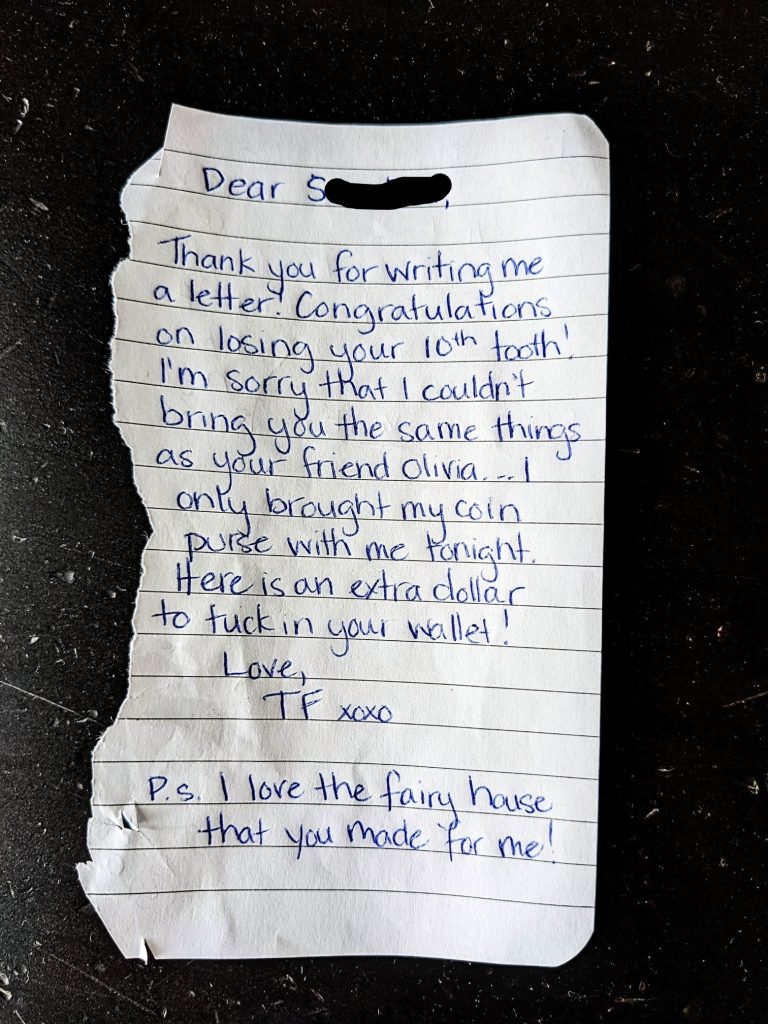 Dear S
Thank you for writing me
a letter! Congratulations
on losing your 10th tooth!
I'm sorry that I couldn't
bring you the same things
as your friend Olivia... I
only brought my coin
purse with me tonight.
Here is an extra dollar
to tuck in your wallet!
Love,
TF xoxo
P.s. I love the fairy house
that you made for me!